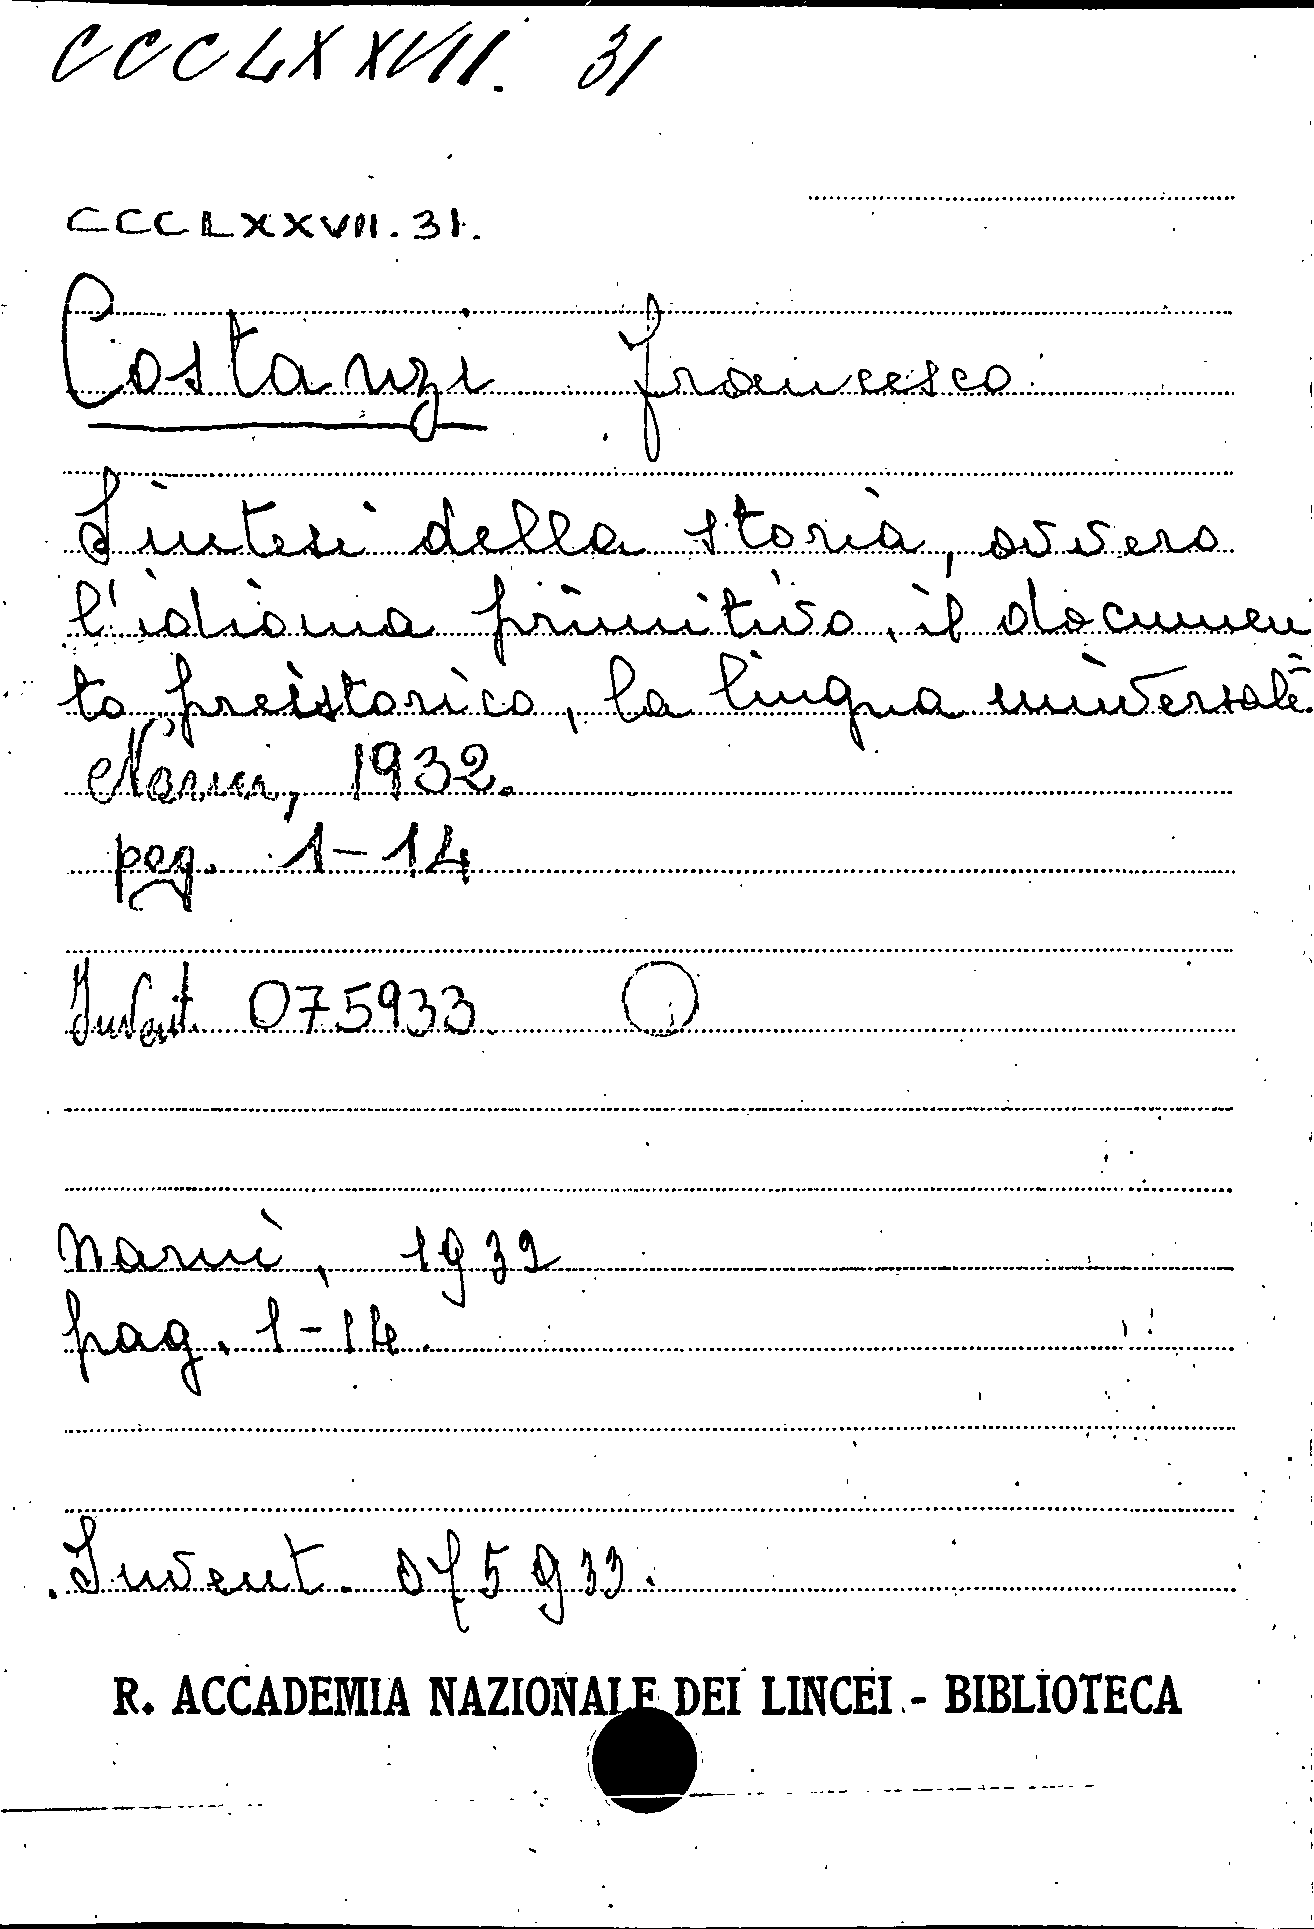 CCCLXXVII. 31
CCCLXXVII. 31.
Costanzi Francesco
Sintesi della storia, ovvero
l'idioma primitivo, il documen
to preistorico, la lingua universale.
Narni, 1932.
pag. 1-14
Invent. 075933.
Narni, 1932
pag. 1-14.
Invent. 075933.
R. ACCADEMIA NAZIONALE DEI LINCEI - BIBLIOTECA